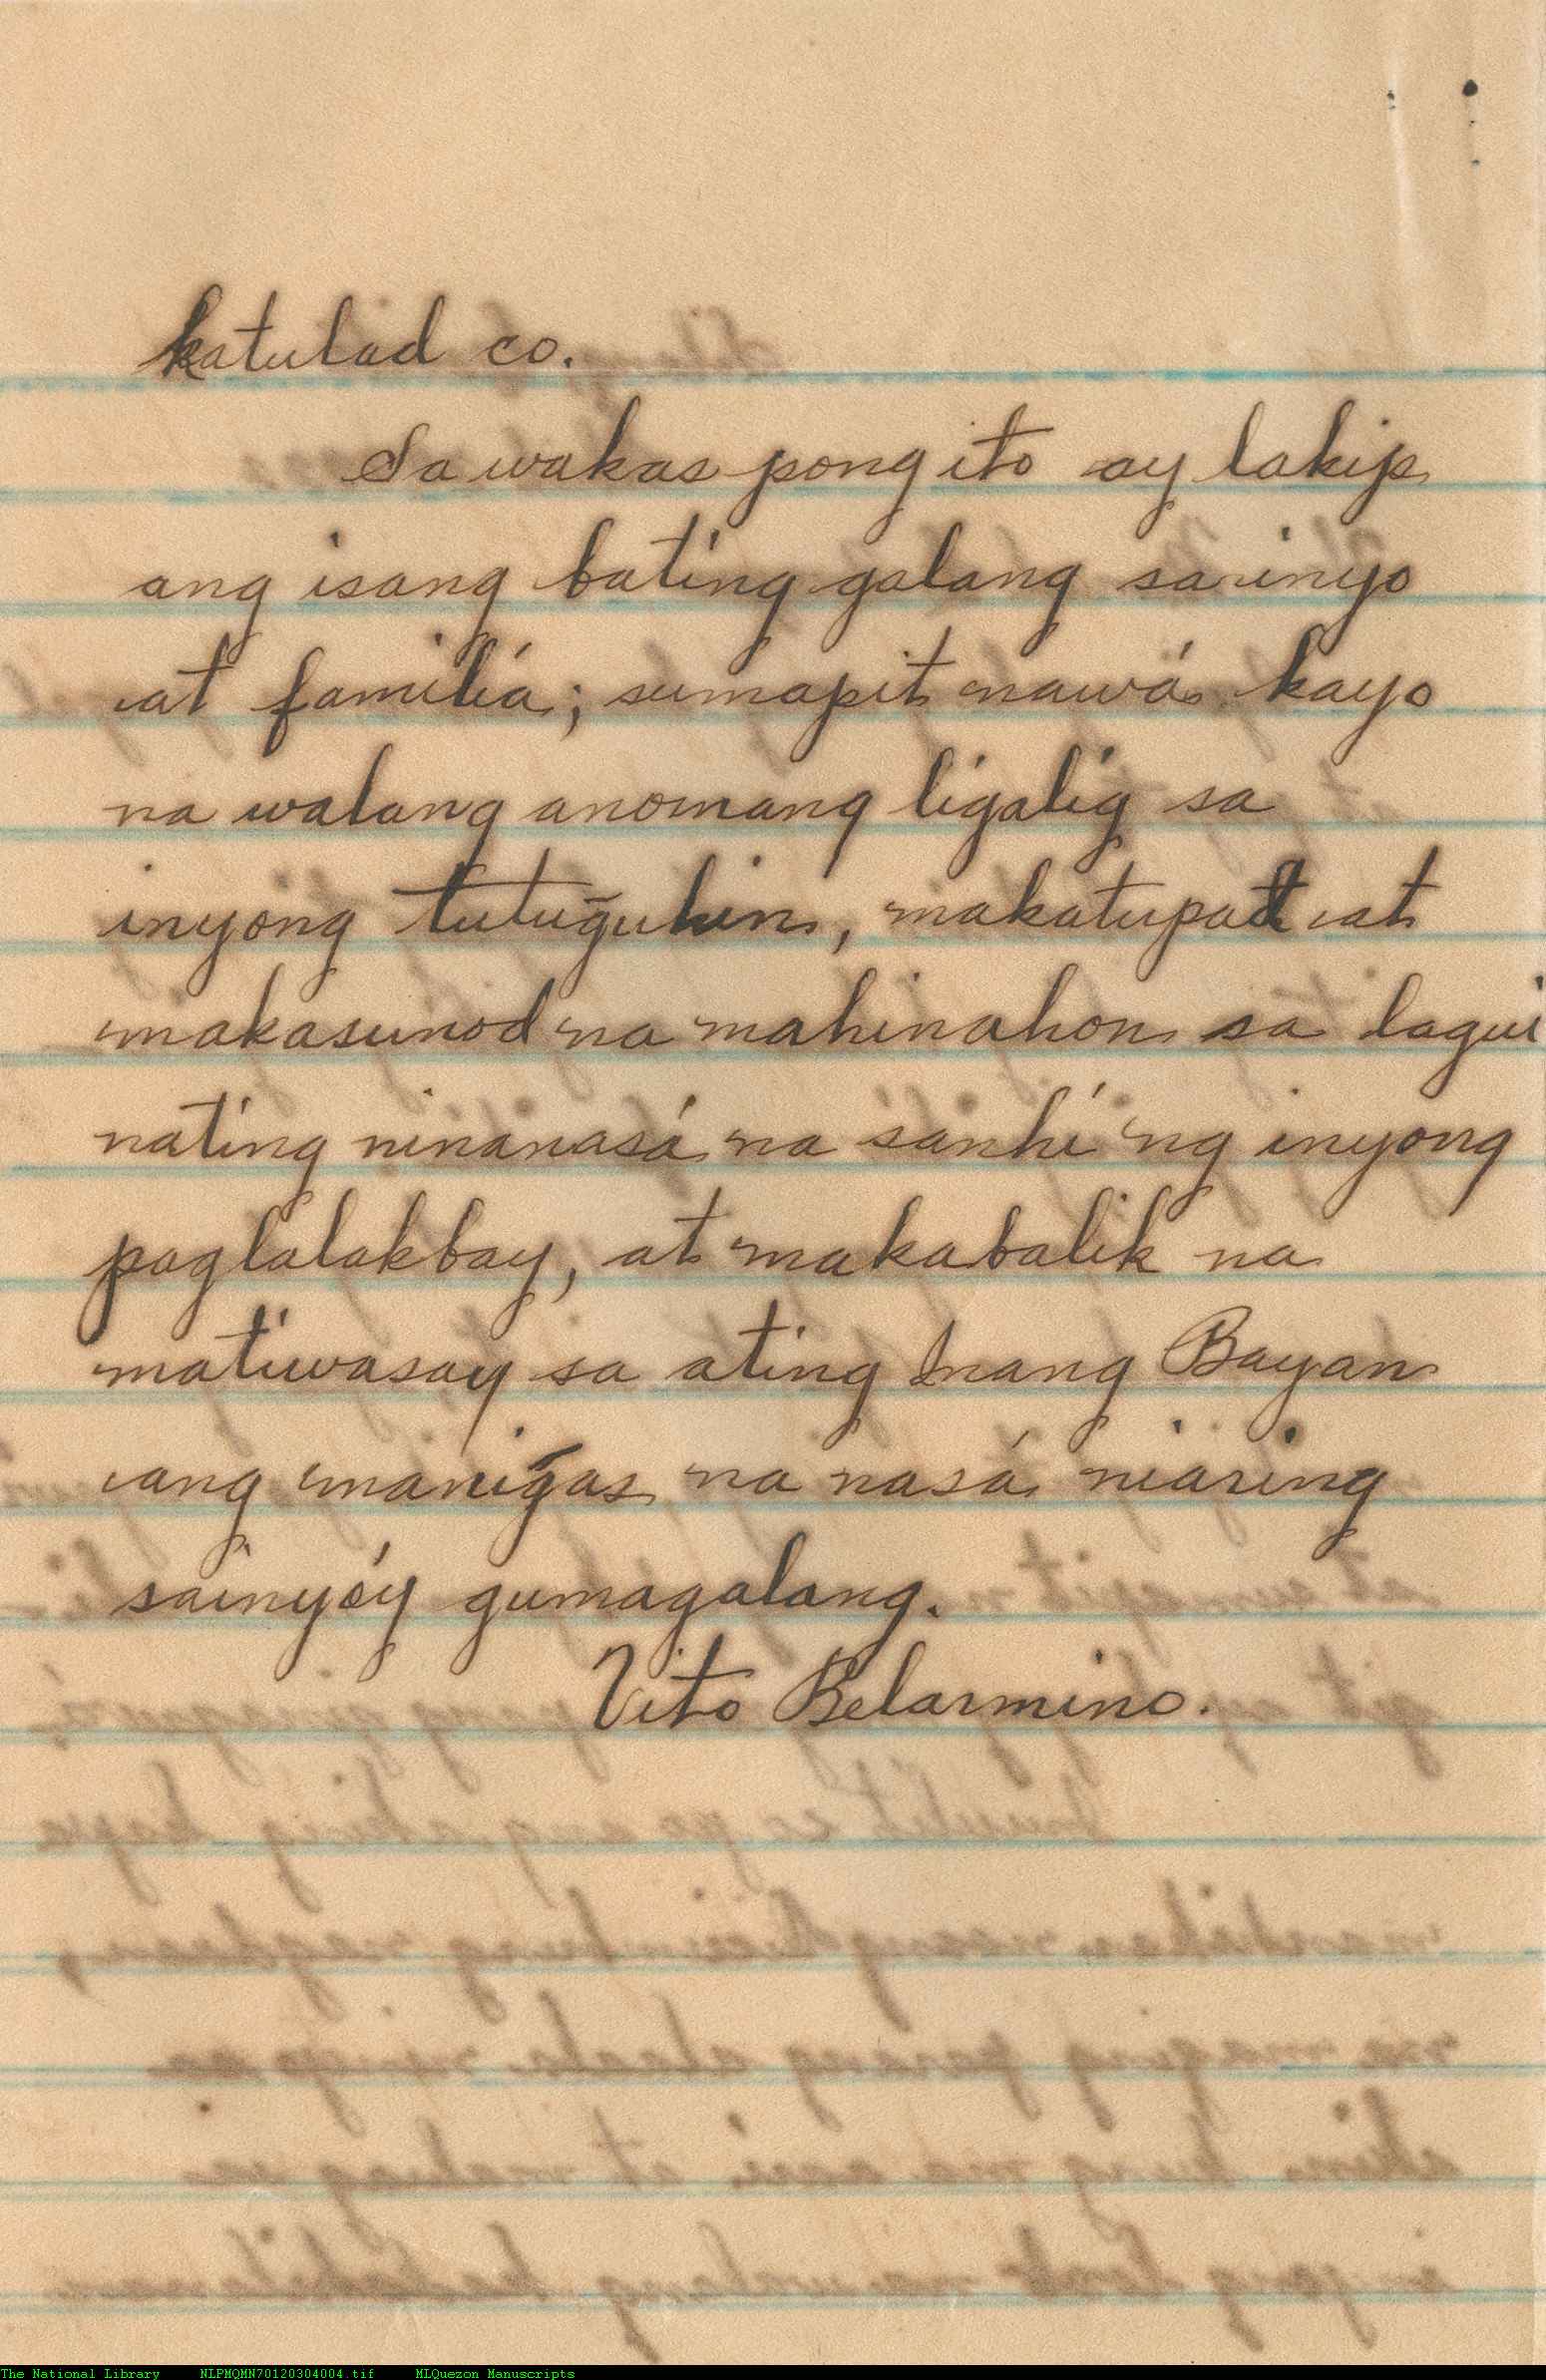 katulad co.
Sa wakas pong ito ay lakip
ang isang bating galang sa inyo
at familia; sumapit nawá kayo
na walang anomang ligalig sa
inyong tutug̃uhin, makatupad at
makasunod na mahinahon sa lagui
nating ninanasá na sanhi ng inyong
paglalakbay, at makabalik na
matiwasay sa ating Inang Bayan
ang manig̃as na nasá niaring
sainyóy gumagalang.
Vito Belarmino.
The National Library NLPMQMN70120304004.tif MLQuezon Manuscripts